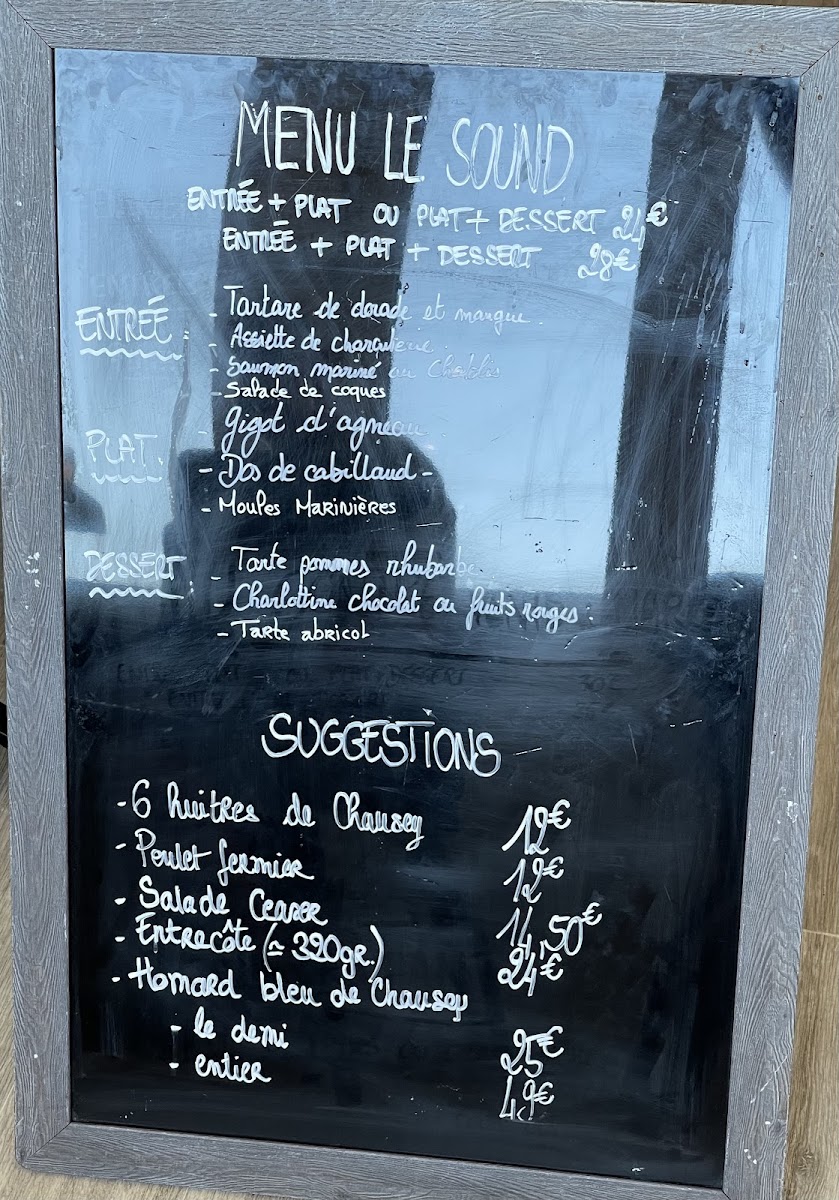 MENU LE SOUND
ENTRÉE + PLAT OU PLAT + DESSERT 24€
ENTRÉE + PLAT + DESSERT 28€
ENTRÉE : - Tartare de dorade et mangue.
- Assiette de charcuterie.
- Saumon mariné au Chablis
- Salade de coques
- Gigot d'agneau
PLAT. - Dos de cabillaud -
- Moules MARINIÈRES
DESSERT : - Tarte pommes rhubarbe
- Charlottine chocolat ou fruits rouges.
- TARTE abricot
SUGGESTIONS
- 6 huitres de Chausey 12€
- Poulet fermier 12€
- Salade Ceaser 14,50€
- Entrecôte (≃ 320gr.) 24€
- Homard bleu de Chausey
- le demi 25€
- entier 49€